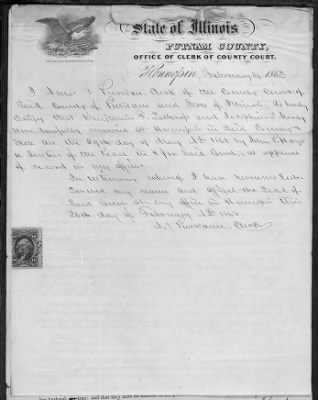 State of Illinois
PUTNAM COUNTY,
OFFICE OF CLERK OF COUNTY COURT.
Hennepin, February 1863
I Clerk of the County Court of
Said County of Putnam and State of Illinois, do hereby
Certify that Benjamin and Josephine
were lawfully married at Hennepin in Said County &
State on the 29th day of May AD 1861 by John
a Justice of the Peace in & for Said County as appears
of record in my office
In Witness whereof I have hereunto Sub-
scribed my name and affixed the Seal of
Said Court at my office in Hennepin this
26th day of February AD 1863
Clerk